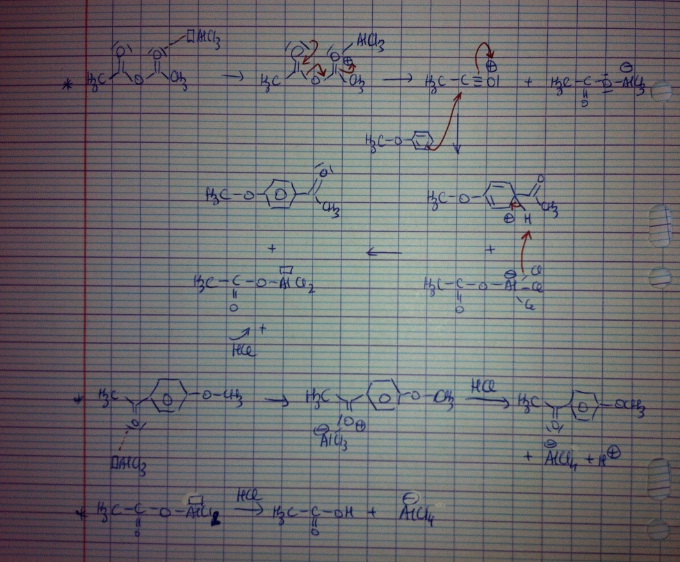 □AlCl₃
* H₃C O O O CH₃ → H₃C O O O⊕ CH₃ AlCl₃ → H₃C – C ≡ O⊕ + H₃C – C – O – AlCl₃ ⊖
O
H₃C – O –
H₃C – O – O CH₃
H₃C – O – O CH₃ ⊕ H
+ ← +
H₃C – C – O – AlCl₂ □
O
H₃C – C – O – Al ⊖ Cl Cl Cl
O
+
HCl
* H₃C – O – CH₃ O □AlCl₃ → H₃C – O – CH₃ O⊕ ⊖AlCl₃ HCl → H₃C – OCH₃ O
+ ⊖AlCl₄ + H⊕
* H₃C – C – O – AlCl₂ □ HCl → H₃C – C – OH + ⊖AlCl₄
O O